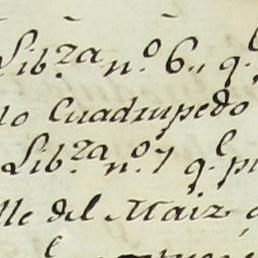 Libꝛza n.º 6,, q.e
lo Cuadrupedo
Libꝛza n.º 7 q.e p
lle del Maiz